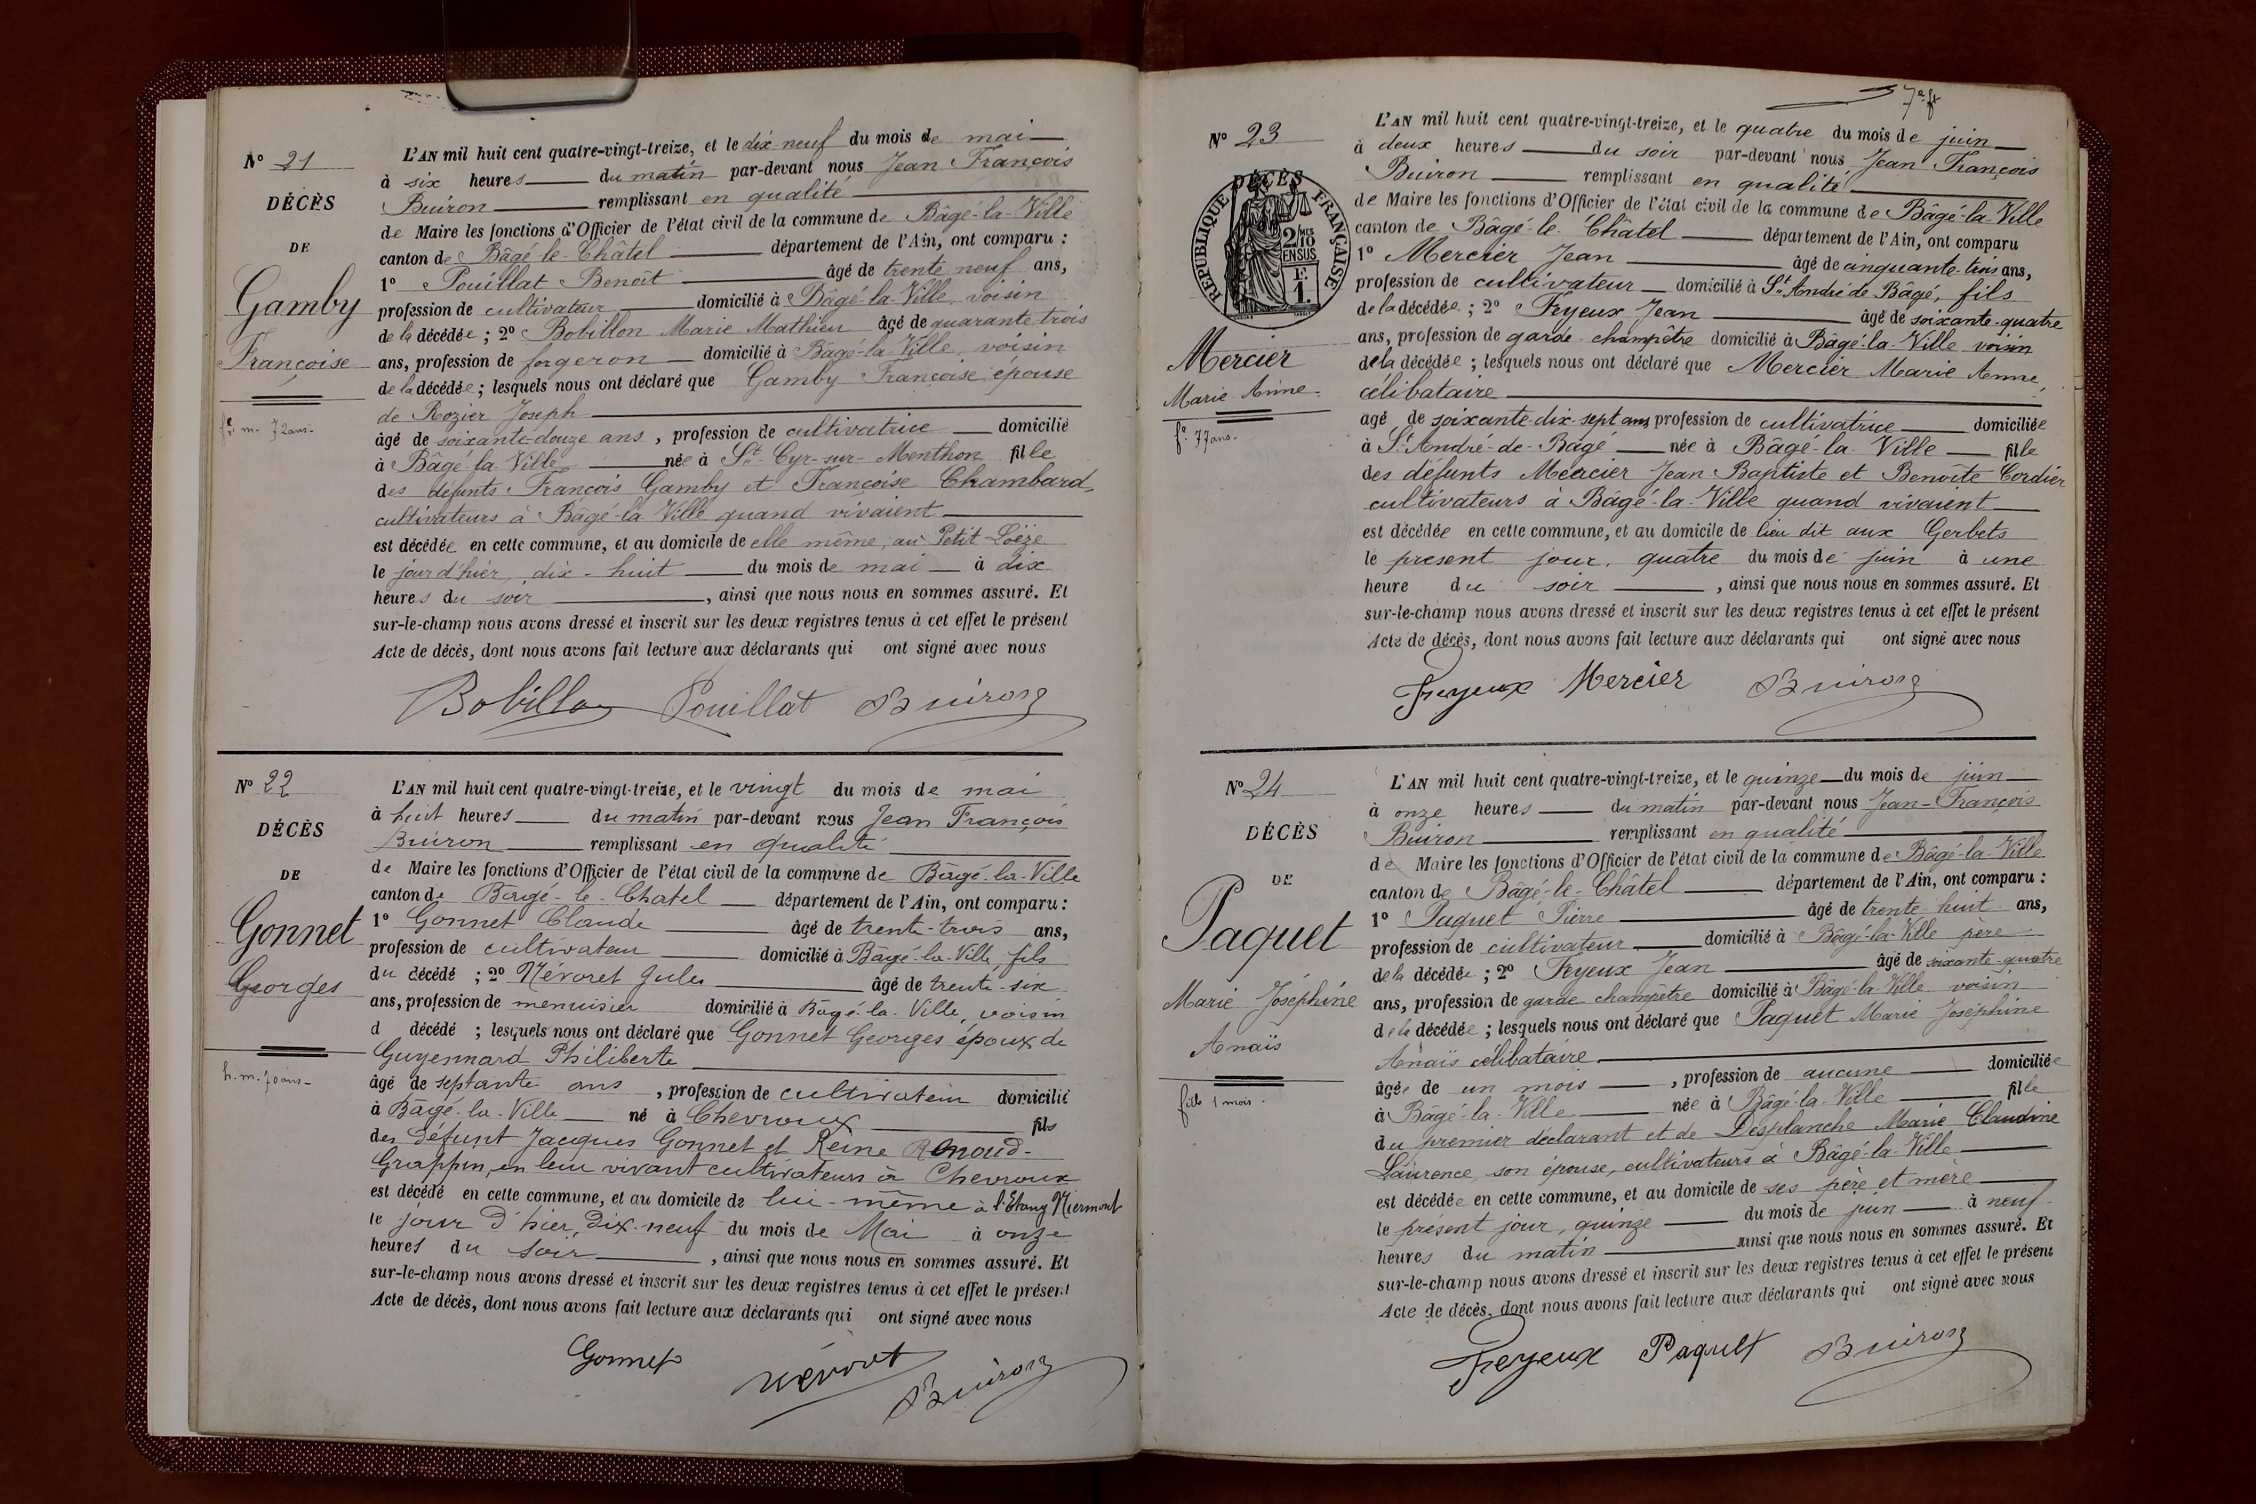 Nº 21
DÉCÈS
DE
Gamby
Françoise
fe. m. 72 ans.
L'AN mil huit cent quatre-vingt-treize, et le dix-neuf du mois de mai
à six heures du matin par-devant nous Jean François
Buiron remplissant en qualité
de Maire les fonctions d'Officier de l'état civil de la commune de Bâgé-la-Ville
canton de Bâgé-le-Châtel département de l'Ain, ont comparu :
1º Pouillat Benoît âgé de trente neuf ans,
profession de cultivateur domicilié à Bâgé-la-Ville, voisin
de la décédée ; 2º Bobillon Marie Mathieu âgé de quarante trois
ans, profession de forgeron domicilié à Bâgé-la-Ville, voisin
de la décédée ; lesquels nous ont déclaré que Gamby Françoise, épouse
de Rozier Joseph
âgé de soixante-douze ans, profession de cultivatrice domicilié
à Bâgé-la-Ville née à St-Cyr-sur-Menthon fille
des défunts François Gamby et Françoise Chambard,
cultivateurs à Bâgé-la-Ville quand vivaient
est décédée en cette commune, et au domicile de elle même, au Petit-Loëze
le jour d'hier, dix-huit du mois de mai à dix
heures du soir, ainsi que nous nous en sommes assuré. Et
sur-le-champ nous avons dressé et inscrit sur les deux registres tenus à cet effet le présent
Acte de décès, dont nous avons fait lecture aux déclarants qui ont signé avec nous
Bobillon Pouillat Buiron
Nº 22
DÉCÈS
DE
Gonnet
Georges
h. m. 70 ans
L'AN mil huit cent quatre-vingt-treize, et le vingt du mois de mai
à huit heures du matin par-devant nous Jean François
Buiron remplissant en qualité
de Maire les fonctions d'Officier de l'état civil de la commune de Bâgé-la-Ville
canton de Bâgé-le-Chatel département de l'Ain, ont comparu :
1º Gonnet Claude âgé de trente-trois ans,
profession de cultivateur domicilié à Bâgé-la-Ville, fils
du décédé ; 2º Névoret Jules âgé de trente-six
ans, profession de menuisier domicilié à Bâgé-la-Ville, voisin
d décédé ; lesquels nous ont déclaré que Gonnet Georges époux de
Guyennard Philiberte
âgé de septante ans, profession de cultivateur domicilié
à Bâgé-la-Ville né à Chevroux fils
des défunt Jacques Gonnet et Reine Renoud-
Grappin, en leur vivant cultivateurs à Chevroux
est décédé en cette commune, et au domicile de lui-même à l'Etang Niermont
le jour d'hier, dix-neuf du mois de Mai à onze
heures du soir, ainsi que nous nous en sommes assuré. Et
sur-le-champ nous avons dressé et inscrit sur les deux registres tenus à cet effet le présent
Acte de décès, dont nous avons fait lecture aux déclarants qui ont signé avec nous
Gonnet Névoret Buiron
7e ft
Nº 23
DÉCÈS
RÉPUBLIQUE FRANÇAISE
2/10 MES
EN SUS
F.
1.
Mercier
Marie Anne
fe. 77 ans.
L'AN mil huit cent quatre-vingt-treize, et le quatre du mois de juin
à deux heures du soir par-devant nous Jean François
Buiron remplissant en qualité
de Maire les fonctions d'Officier de l'état civil de la commune de Bâgé-la-Ville
canton de Bâgé-le-Châtel département de l'Ain, ont comparu
1º Mercier Jean âgé de cinquante-trois ans,
profession de cultivateur domicilié à St André de Bâgé, fils
de la décédée ; 2º Feyeux Jean âgé de soixante-quatre
ans, profession de garde champêtre domicilié à Bâgé-la-Ville voisin
de la décédée ; lesquels nous ont déclaré que Mercier Marie Anne,
célibataire
agé de soixante-dix-sept ans profession de cultivatrice domiciliée
à St André-de-Bâgé née à Bâgé-la-Ville fille
des défunts Mercier Jean Baptiste et Benoîte Cordier
cultivateurs à Bâgé-la-Ville quand vivaient
est décédée en cette commune, et au domicile de lieu dit aux Gerbets
le présent jour, quatre du mois de juin à une
heure du soir, ainsi que nous nous en sommes assuré. Et
sur-le-champ nous avons dressé et inscrit sur les deux registres tenus à cet effet le présent
Acte de décès, dont nous avons fait lecture aux déclarants qui ont signé avec nous
Feyeux Mercier Buiron
Nº 24
DÉCÈS
DE
Paquet
Marie Joséphine
Anaïs
fille 1 mois.
L'AN mil huit cent quatre-vingt-treize, et le quinze du mois de juin
à onze heures du matin par-devant nous Jean-François
Buiron remplissant en qualité
de Maire les fonctions d'Officier de l'état civil de la commune de Bâgé-la-Ville
canton de Bâgé-le-Châtel département de l'Ain, ont comparu :
1º Paquet Pierre âgé de trente-huit ans,
profession de cultivateur domicilié à Bâgé-la-Ville père
de la décédée ; 2º Feyeux Jean âgé de soixante-quatre
ans, profession de garde champêtre domicilié à Bâgé-la-Ville voisin
de la décédée ; lesquels nous ont déclaré que Paquet Marie Joséphine
Anaïs célibataire
âgée de un mois, profession de aucune domiciliée
à Bâgé-la-Ville née à Bâgé-la-Ville fille
du premier déclarant et de Desplanche Marie Claudine
Laurence, son épouse, cultivateurs à Bâgé-la-Ville
est décédée en cette commune, et au domicile de ses père et mère
le présent jour, quinze du mois de juin à neuf
heures du matin ainsi que nous nous en sommes assuré. Et
sur-le-champ nous avons dressé et inscrit sur les deux registres tenus à cet effet le présent
Acte de décès, dont nous avons fait lecture aux déclarants qui ont signé avec nous
Feyeux Paquet Buiron